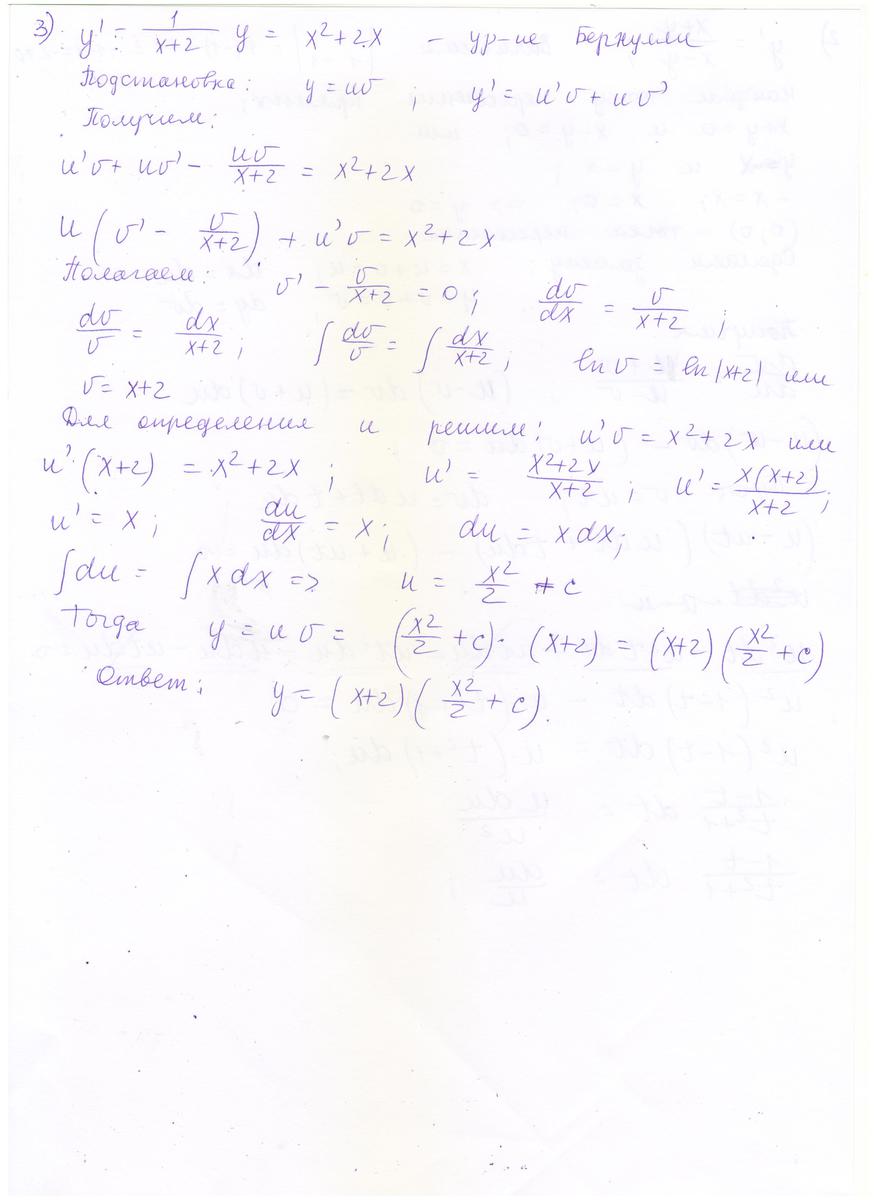 3) y' = 1/(x+2) y = x² + 2x – ур-ие Бернулли
Подстановка: y = uv ; y' = u'v + uv'
Получим:
u'v + uv' – uv/(x+2) = x² + 2x
u (v' – v/(x+2)) + u'v = x² + 2x
Полагаем: v' – v/(x+2) = 0; dv/dx = v/(x+2);
dv/v = dx/(x+2); ∫ dv/v = ∫ dx/(x+2); ln v = ln |x+2| или
v = x+2
Для определения u решим: u'v = x² + 2x или
u' (x+2) = x² + 2x ; u' = (x²+2x)/(x+2) ; u' = x(x+2)/(x+2) ;
u' = x ; du/dx = x ; du = x dx;
∫ du = ∫ x dx => u = x²/2 + c
Тогда y = uv = (x²/2 + c) · (x+2) = (x+2) (x²/2 + c)
Ответ: y = (x+2) (x²/2 + c).